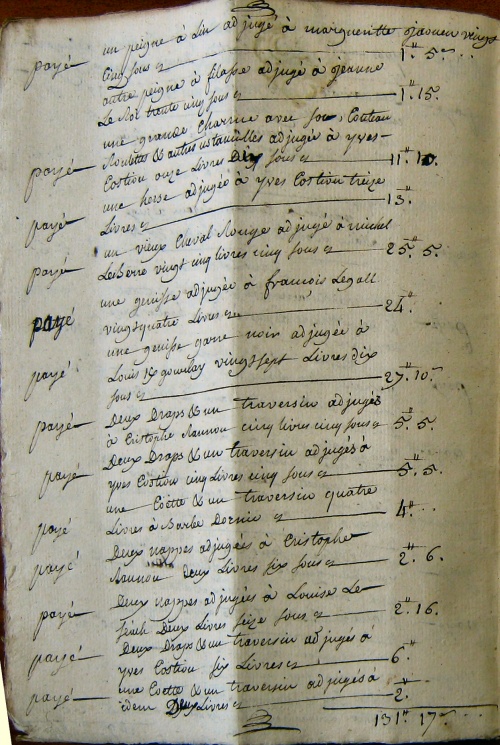 un peigne à lin adjugé à margueritte Jaouen vingt
payé cinq sous 1" 5s
autre peigne à filasse adjugé à Jeanne
Le Roi trente cinq sous 1" 15.
une grande Charrue avec son Coutiau
Roulettes & autres ustancilles adjugée à yves
payé Costiou onze Livres Dix sous 11" 10.
une herse adjugée à yves Costiou treize
payé Livres 13"
un vieux Cheval Rouge adjugé à michel
payé LeBerre vingt cinq livres cinq sous 25" 5.
une genisse adjugée à francois Legall
payé vingt quatre Livres 24"
une genisse garre noir adjugée à
Louis gourlay vingt sept Livres dix
payé sous 27" 10s
Deux Draps & un traversin adjugés
payé à Cristophe Naunou cinq livres cinq sous 5" 5.
Deux Draps & un traversin adjugés à
payé yves Costiou cinq Livres cinq sous 5" 5.
une Coëtte & un traversin quatre
payé Livres à Barbe Dornic 4"
Deux nappes adjugées à Cristophe
payé Naunou Deux Livres six sous 2" 6.
Deux nappes adjugées à Louise Le
payé Deux Livres seize sous 2" 16.
Deux Draps & un traversin adjugés à
payé yves Costiou six Livres 6"
une Coëtte & un traversin adjugés à
payé idem Deux Livres 2"
131" 17s